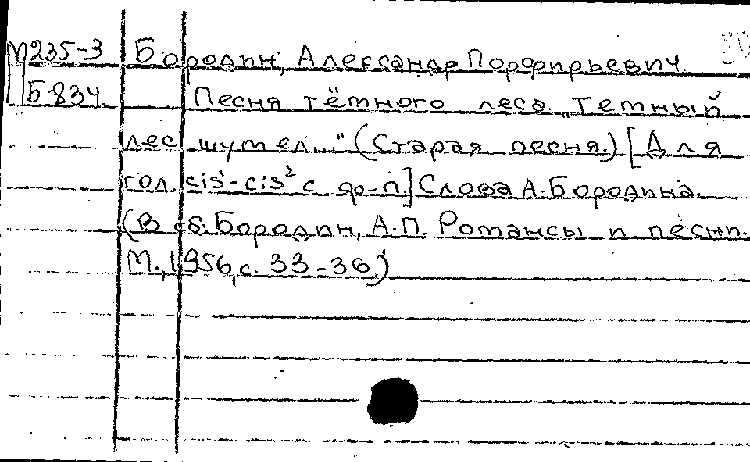 М235-3 Бородин, Александр Порфирьевич.
Б-834 Песня тёмного леса „Темный
лес шумел..." (Старая песня.) [Для
гол. cis¹-cis² с ф-п.] Слова А. Бородина.
(В сб. Бородин, А.П. Романсы и песни.
М., 1956, с. 33-36)